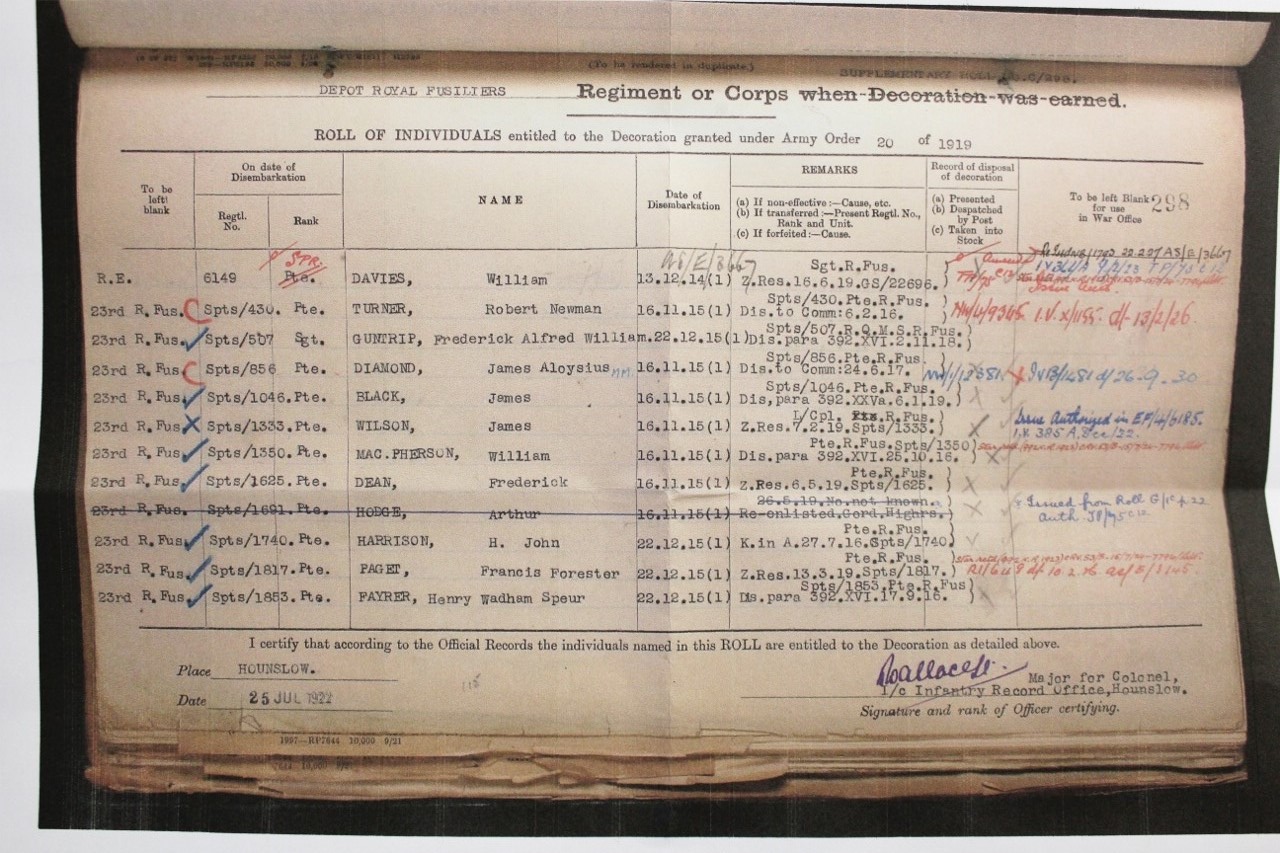 (To be rendered in duplicate)
SUPPLEMENTARY ROLL NO.C/298.
DEPOT ROYAL FUSILIERS Regiment or Corps when Decoration was earned.
ROLL OF INDIVIDUALS entitled to the Decoration granted under Army Order 20 of 1919
To be left blank
On date of Disembarkation
Regtl. No.
Rank
NAME
Date of Disembarkation
REMARKS
(a) If non-effective :—Cause, etc.
(b) If transferred :—Present Regtl. No., Rank and Unit.
(c) If forfeited :—Cause.
Record of disposal of decoration
(a) Presented
(b) Despatched by Post
(c) Taken into Stock
To be left Blank for use in War Office
298
AS/E/3667
SPR.
Sgt.R.Fus.
R.E. 6149 Pte. DAVIES, William 13.12.14(1) Z.Res.16.6.19.GS/22696.)
Spts/430.Pte.R.Fus. )
23rd R.Fus. C Spts/430. Pte. TURNER, Robert Newman 16.11.15(1) Dis.to Comm:6.2.16. ) NW/4/9345 I.V. x/1155. d/- 13/2/26.
Spts/507.R.Q.M.S.R.Fus.)
23rd R.Fus. Spts/507 Sgt. GUNTRIP, Frederick Alfred William. 22.12.15(1) Dis.para 392.XVI.2.11.18.)
Spts/856.Pte.R.Fus. )
23rd R.Fus. C Spts/856 Pte. DIAMOND, James Aloysius MM. 16.11.15(1) Dis.to Comm:24.6.17. ) d/26.9.30
Spts/1046.Pte.R.Fus. )
23rd R.Fus. Spts/1046. Pte. BLACK, James 16.11.15(1) Dis,para 392.XXVa.6.1.19.) X
L/Cpl. Pte.R.Fus.)
23rd R.Fus. X Spts/1333. Pte. WILSON, James 16.11.15(1) Z.Res.7.2.19.Spts/1333. ) X Issue Authorised in EF/4/6185.
I.V. 385 A. Dec/22.
Pte.R.Fus.Spts/1350)
23rd R.Fus. Spts/1350. Pte. MAC.PHERSON, William 16.11.15(1) Dis.para 392.XVI.25.10.16. ) X
Pte.R.Fus. )
23rd R.Fus. Spts/1625. Pte. DEAN, Frederick 16.11.15(1) Z.Res.6.5.19.Spts/1625. ) X
26.5.19.No.not known. )
23rd R.Fus. Spts/1691. Pte. HODGE, Arthur 16.11.15(1) Re-enlisted.Gord.Highrs.) X Issued from Roll
Pte.R.Fus. )
23rd R.Fus. Spts/1740. Pte. HARRISON, H. John 22.12.15(1) K.in A.27.7.16.Spts/1740)
Pte.R.Fus. )
23rd R.Fus. Spts/1817. Pte. PAGET, Francis Forester 22.12.15(1) Z.Res.13.3.19.Spts/1817. )
Spts/1853.Pte.R.Fus)
23rd R.Fus. Spts/1853. Pte. FAYRER, Henry Wadham Speur 22.12.15(1) Dis.para 392.XVI.17.9.16. )
I certify that according to the Official Records the individuals named in this ROLL are entitled to the Decoration as detailed above.
Place HOUNSLOW.
Date 25 JUL 1922
Major for Colonel,
i/c Infantry Record Office,Hounslow.
Signature and rank of Officer certifying.
1997—RP7644 10,000 9/21